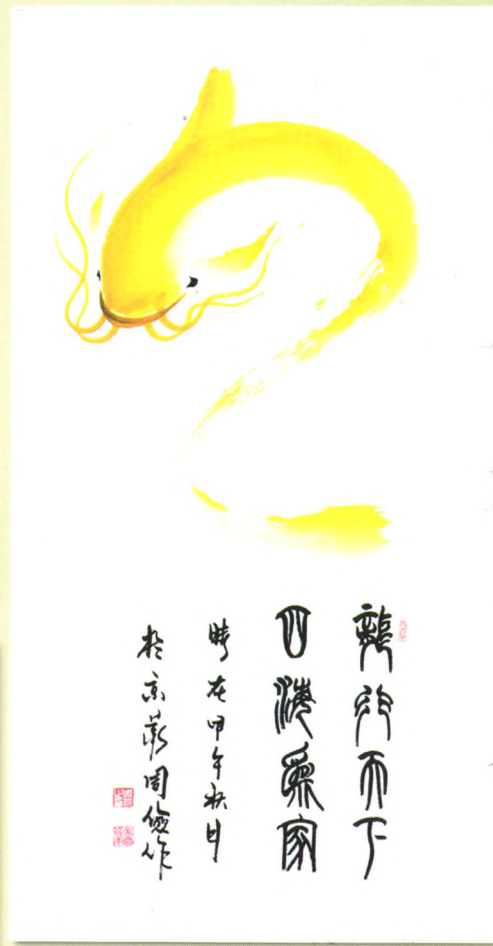 龍行天下
四海為家
時在甲午秋月
於京薊周儉作